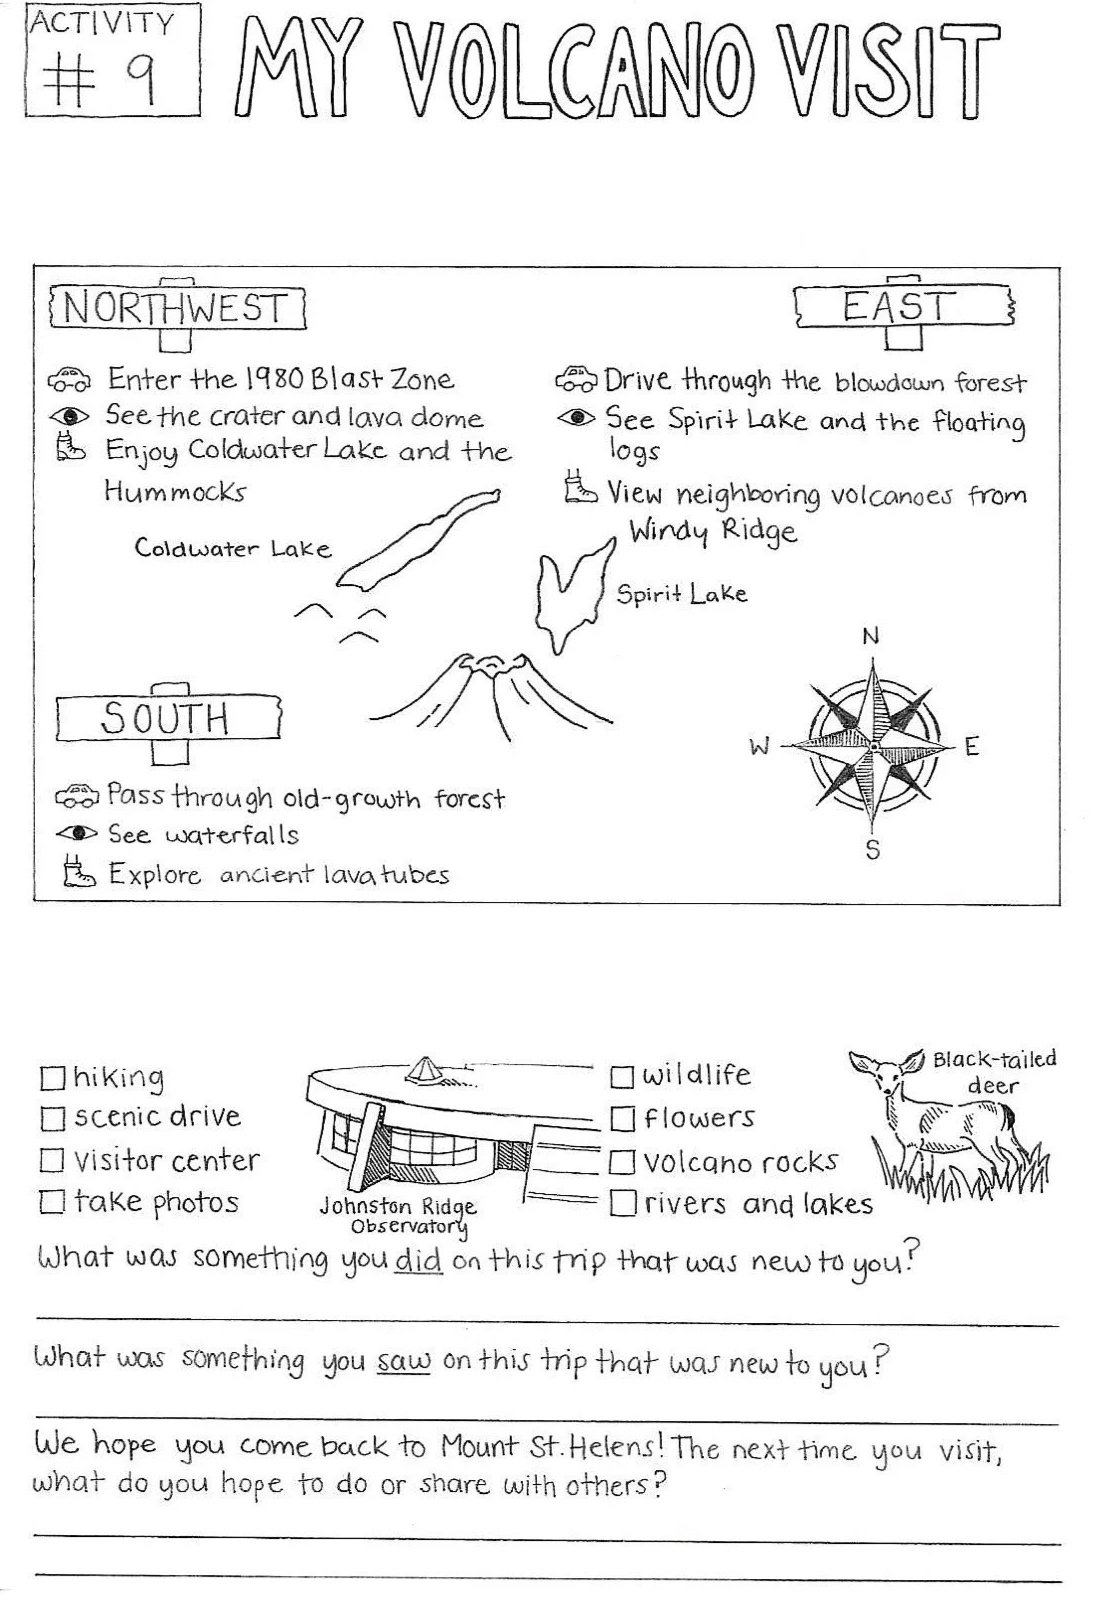 ACTIVITY
# 9
MY VOLCANO VISIT
NORTHWEST
Enter the 1980 Blast Zone
See the crater and lava dome
Enjoy Coldwater Lake and the
Hummocks
EAST
Drive through the blowdown forest
See Spirit Lake and the floating
logs
View neighboring volcanoes from
Windy Ridge
Coldwater Lake
Spirit Lake
N
W
E
S
SOUTH
Pass through old-growth forest
See waterfalls
Explore ancient lava tubes
hiking
scenic drive
visitor center
take photos
Johnston Ridge
Observatory
wildlife
flowers
volcano rocks
rivers and lakes
Black-tailed
deer
What was something you did on this trip that was new to you?
What was something you saw on this trip that was new to you?
We hope you come back to Mount St. Helens! The next time you visit,
what do you hope to do or share with others?